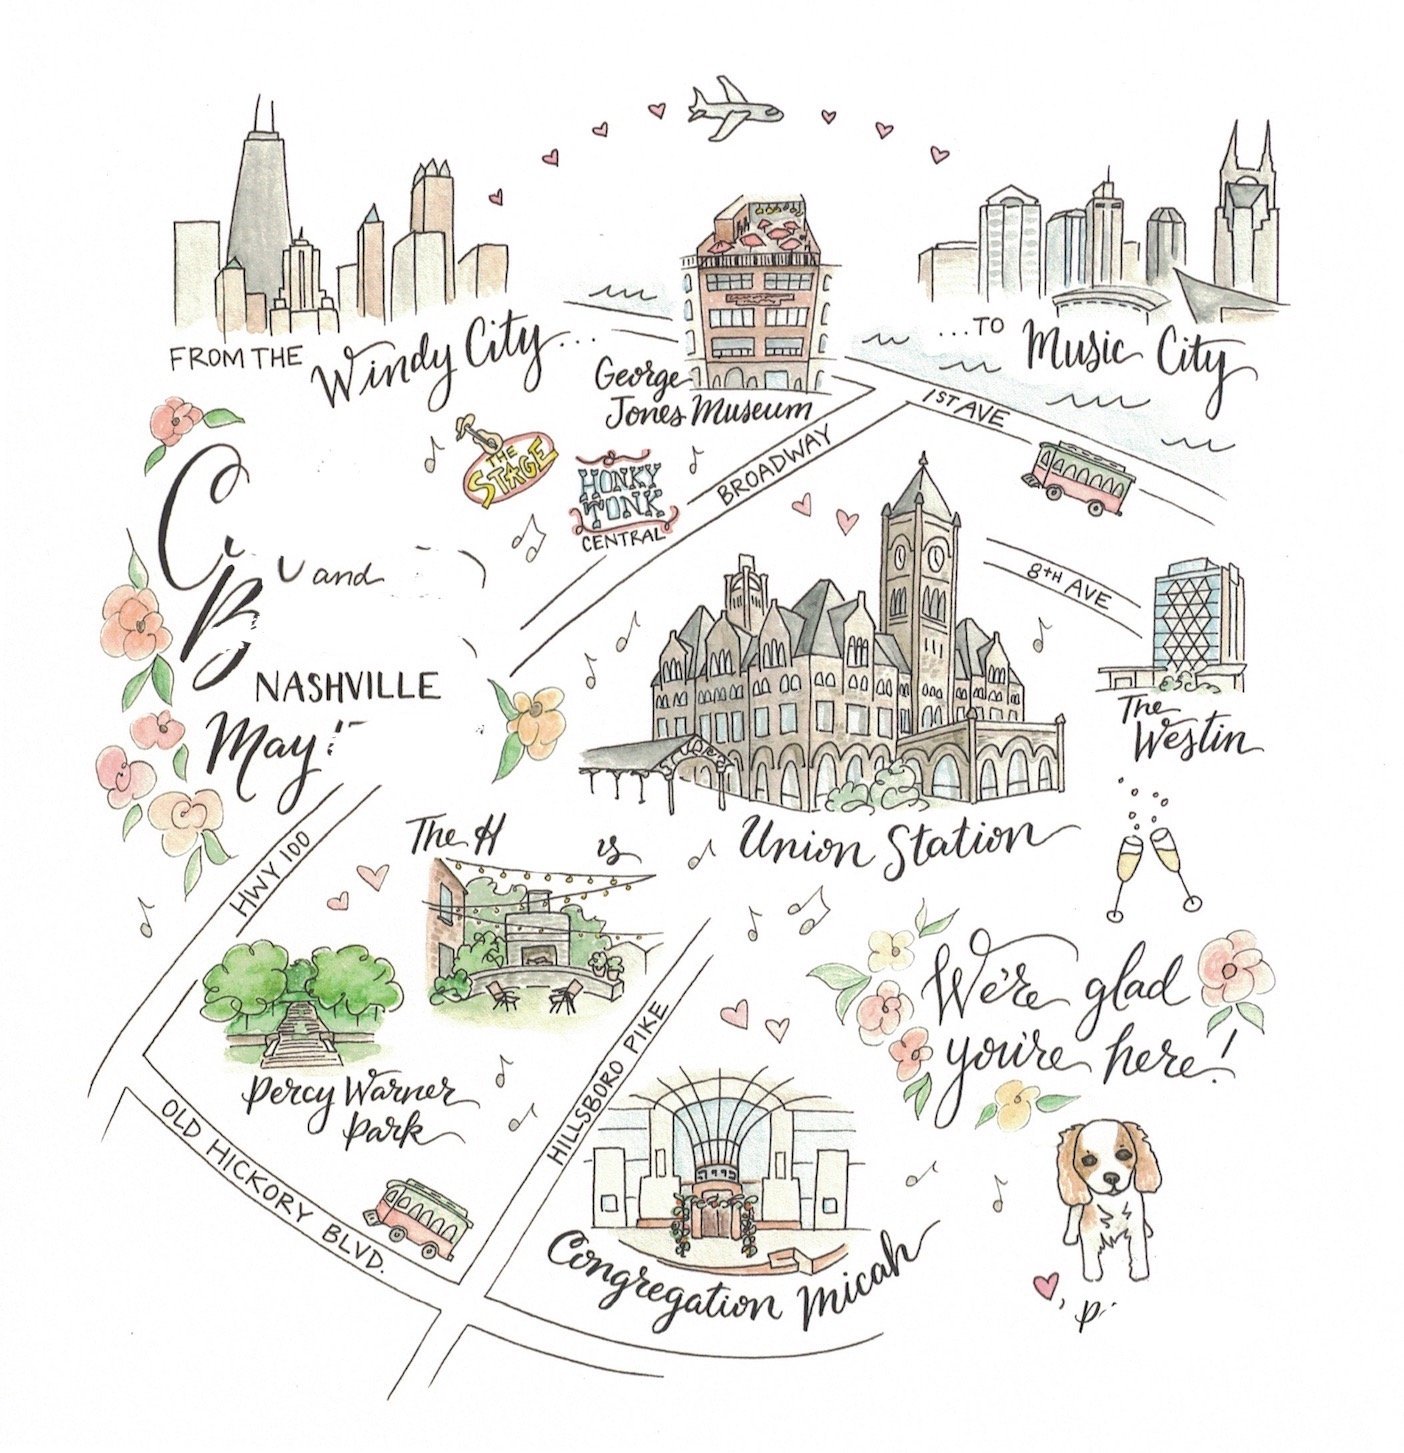 FROM THE Windy City...
...TO Music City
George
Jones Museum
1ST AVE
THE
STAGE
HONKY
TONK
CENTRAL
BROADWAY
8TH AVE
and
NASHVILLE
May
The
Westin
HWY 100
The H
Union Station
We're glad
you're here!
Percy Warner
Park
HILLSBORO PIKE
OLD HICKORY BLVD.
Congregation Micah